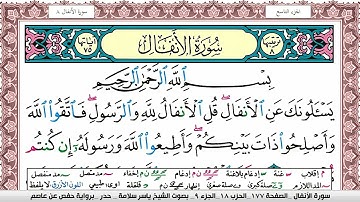 سورة الأنفال ٨
الجزء التاسع
ترتيبها ٨
سُورَةُ الأَنفَالِ
آياتها ٧٥
بِسْمِ ٱللَّهِ ٱلرَّحْمَٰنِ ٱلرَّحِيمِ
يَسْـَٔلُونَكَ عَنِ ٱلْأَنفَالِ ۖ قُلِ ٱلْأَنفَالُ لِلَّهِ وَٱلرَّسُولِ ۖ فَٱتَّقُوا۟ ٱللَّهَ
وَأَصْلِحُوا۟ ذَاتَ بَيْنِكُمْ ۖ وَأَطِيعُوا۟ ٱللَّهَ وَرَسُولَهُۥٓ إِن كُنتُم
سورة الأنفال - الصفحة ١٧٧ - الحزب ١٨ - الجزء ٩ - بصوت الشيخ ياسر سلامة - حدر - برواية حفص عن عاصم